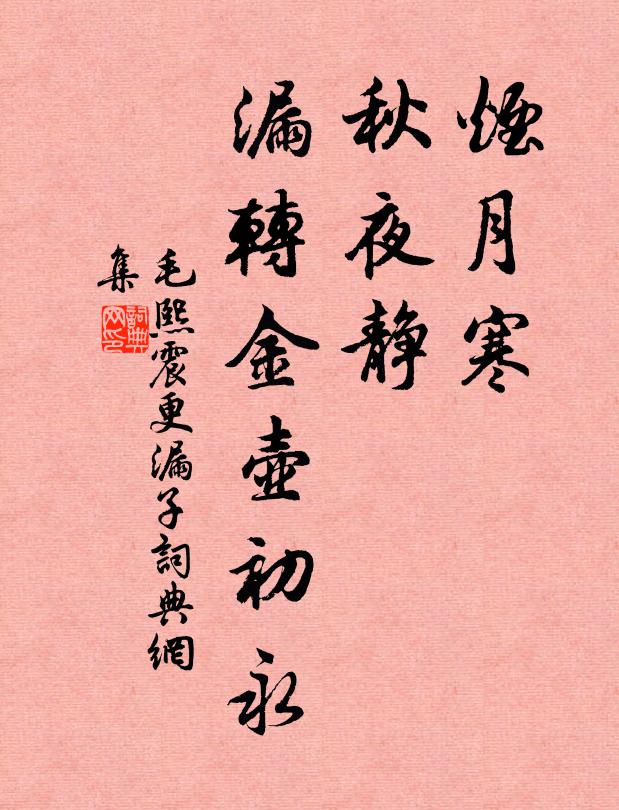 煙月寒
秋夜静
漏轉金壺初永
毛熙震更漏子詞典網
集
詞典网印